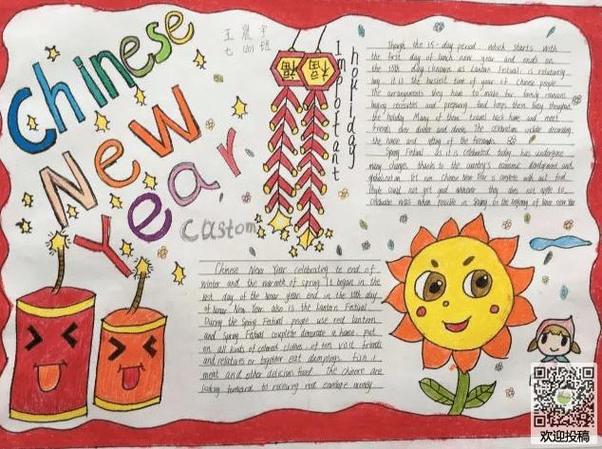 Chinese
New
Year
王晨宇
七四班
福 福
Important
houliday
Though the 15-day period which starts with
the first day of lunch new year and ends on
the 15th day (known as Lantern Festival is relatively
it is the busiest time of year of Chinese people
The arrangements they have to make for family reunions
buying necessities and preparing food keeps them busy throughout
the holiday Many of them travel back home and meet
friends over dinner and drinks The celebration include decorating
the house and of the fireworks
Spring Festival as it is celebrated today has undergone
many changes thanks to the country's economic development and
Custom
Chinese New Year celebrating to end of
winter and the warmth of spring It began in the
last day of the lunar year end in the 15th day
of lunar New Year also is the Lantern Festival
During the Spring Festival people use red lantern
and Spring Festival couplets decorate a home put
on all kinds of colored clothes often visit friends
and relatives or together eat dumplings fish
meat and other delicious food The Chinese are
looking forward to receiving red money
欢迎投稿